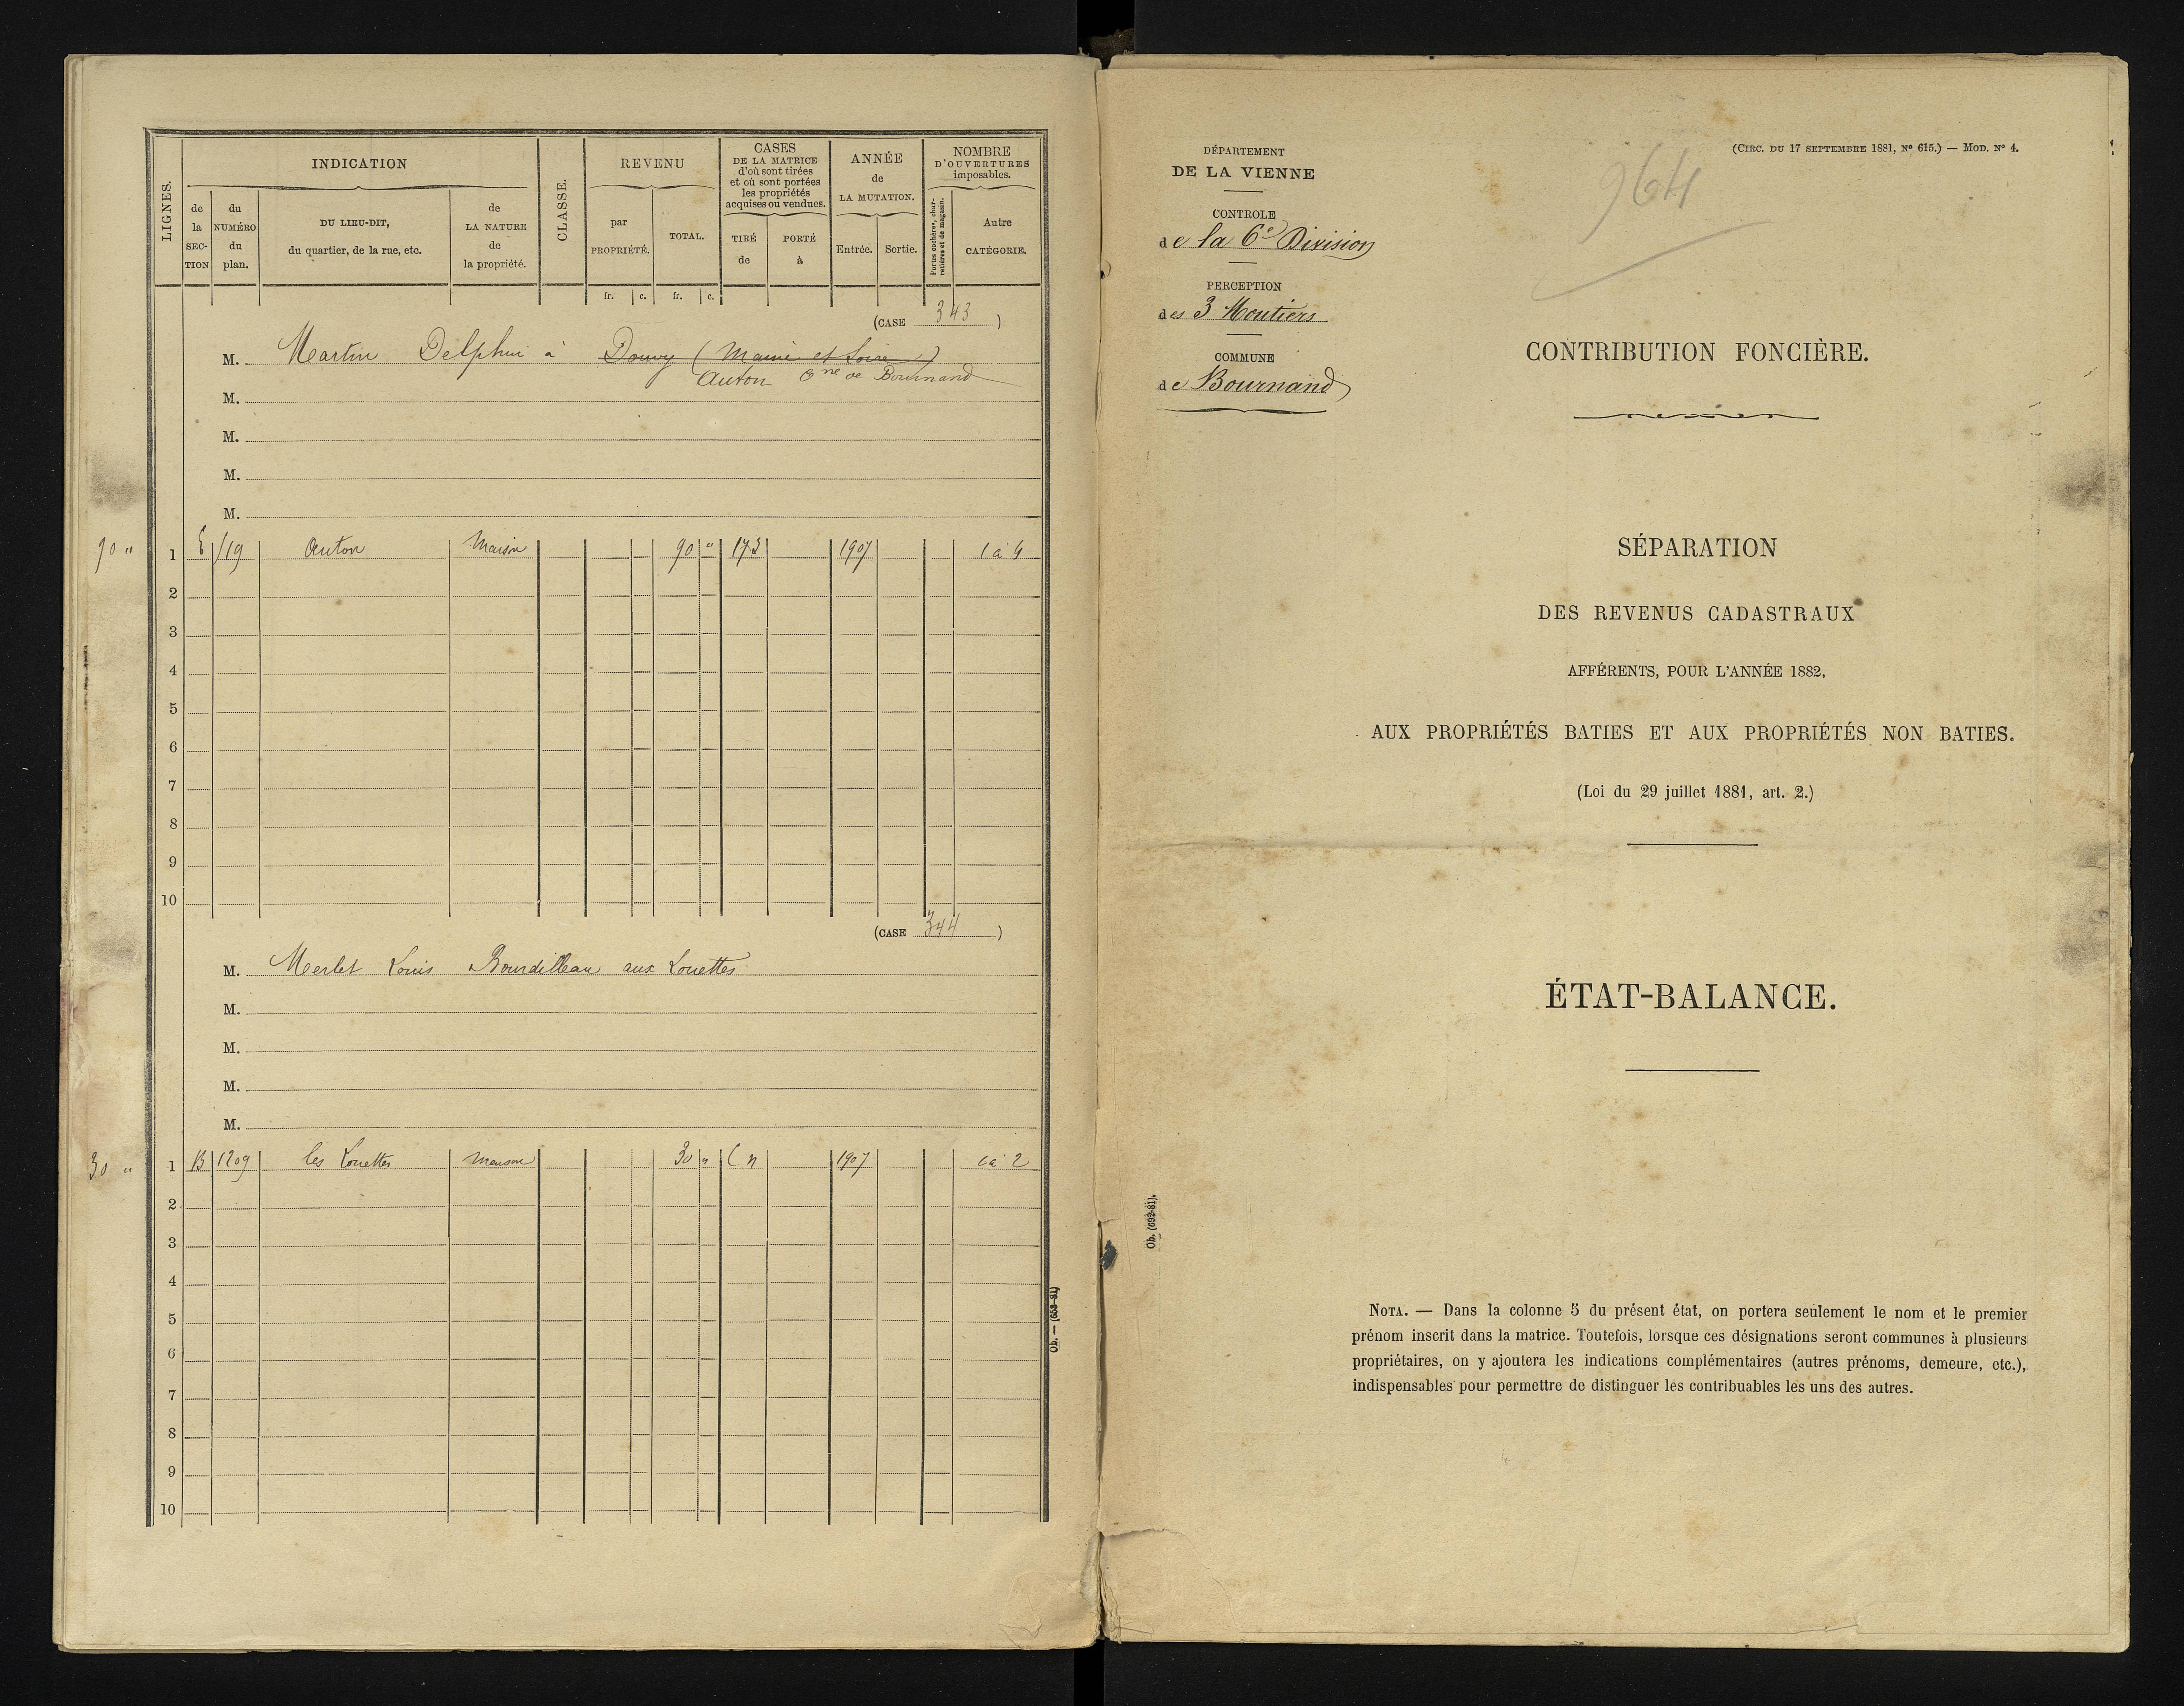 LIGNES.
INDICATION
de la SECTION
du NUMÉRO du plan.
DU LIEU-DIT, du quartier, de la rue, etc.
de LA NATURE de la propriété.
CLASSE.
REVENU
par PROPRIÉTÉ.
TOTAL.
CASES DE LA MATRICE d'où sont tirées et où sont portées les propriétés acquises ou vendues.
TIRÉ de
PORTÉ à
ANNÉE de LA MUTATION.
Entrée.
Sortie.
NOMBRE D'OUVERTURES imposables.
Portes cochères, charretières et de magasin.
Autre CATÉGORIE.
fr. c. fr. c.
(CASE 343)
M. Martin Delphin à Douvy (Maine et Loire)
Anton Cne de Bournand
M.
M.
M.
M.
90 " 1 E 119 Anton Maison 90 " 173 1907 1 à 4
2
3
4
5
6
7
8
9
10
(CASE 344)
M. Merlet Louis Bourdilleau aux Louettes
M.
M.
M.
M.
30 " 1 B 1209 les Louettes Maison 30 " C n 1907 1 à 2
2
3
4
5
6
7
8
9
10
Ob. — (693-81)
DÉPARTEMENT
DE LA VIENNE
CONTROLE
de la 6e Division
PERCEPTION
des 3 Moutiers
COMMUNE
de Bournand
(CIRC. DU 17 SEPTEMBRE 1881, N° 615.) — MOD. N° 4.
964
CONTRIBUTION FONCIÈRE.
SÉPARATION
DES REVENUS CADASTRAUX
AFFÉRENTS, POUR L'ANNÉE 1882,
AUX PROPRIÉTÉS BATIES ET AUX PROPRIÉTÉS NON BATIES.
(Loi du 29 juillet 1881, art. 2.)
ÉTAT-BALANCE.
Ob. (692-81).
NOTA. — Dans la colonne 5 du présent état, on portera seulement le nom et le premier
prénom inscrit dans la matrice. Toutefois, lorsque ces désignations seront communes à plusieurs
propriétaires, on y ajoutera les indications complémentaires (autres prénoms, demeure, etc.),
indispensables pour permettre de distinguer les contribuables les uns des autres.